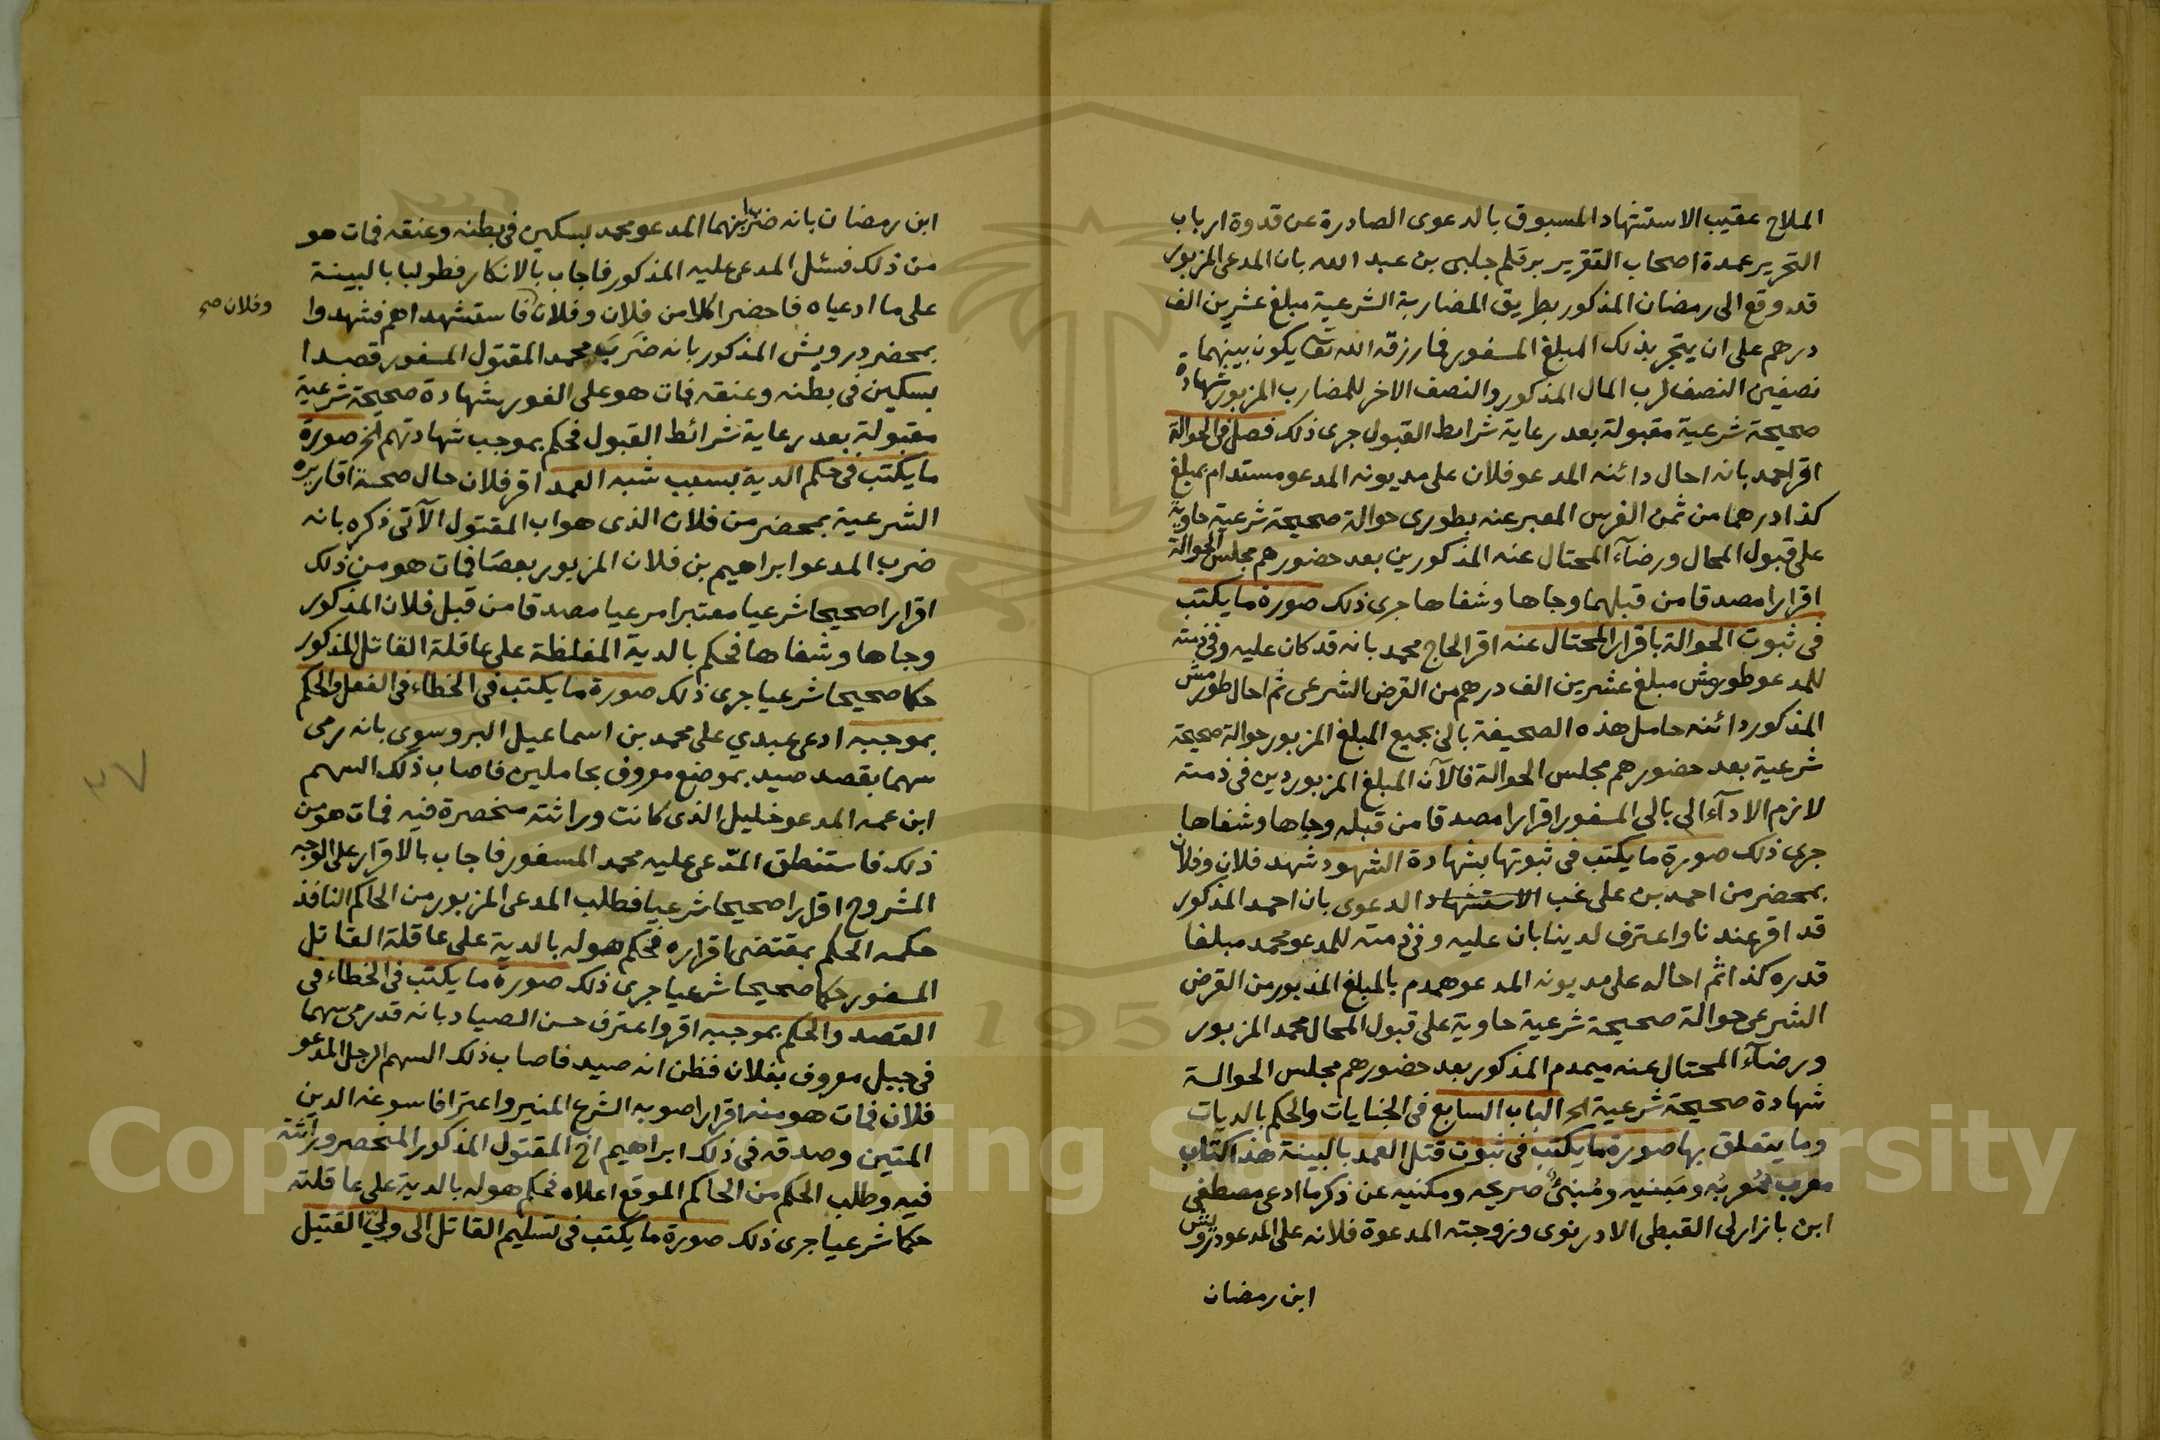 الملاح عقيب الاستشهاد المسبوق بالدعوى الصادرة عن قدوة ارباب
التحرير عمدة اصحاب التقرير برقلم جلبى بن عبد الله بان المدعى المزبور
قد وقع الى رمضان المذكور بطريق المضاربة الشرعية مبلغ عشرين الف
درهم على ان يتجر بذلك المبلغ المسفور فما رزقه الله تعا يكون بينهما
نصفين النصف لرب المال المذكور والنصف الاخر للمضارب المزبور شهادة
صحيحة شرعية مقبولة بعد رعاية شرايط القبول جرى ذلك فصل فى الحوالة
اقر احمد بانه احال دائنه المدعو فلان على مديونه المدعو مستدام بمبلغ
كذا درهما من ثمن الفرس المعبر عنه بطورى حوالة صحيحة شرعية حاوية
على قبول المحال ورضآء المحتال عنه المذكورين بعد حضورهم مجلس الحوالة
اقرارا مصدقا من قبلهما وجاها وشفاها جرى ذلك صورة ما يكتب
فى ثبوت الحوالة باقرار المحتال عنه اقر الحاج محمد بانه قد كان عليه وفى ذمته
للمدعو طورمش مبلغ عشرين الف درهم من القرض الشرعى ثم احال طورمش
المذكور دائنه حامل هذه الصحيفة بالى بجميع المبلغ المزبور حوالة صحيحة
شرعية بعد حضورهم مجلس الحوالة فالآن المبلغ المزبور دين فى ذمته
لازم الادآء الى بالى المسفور اقرارا مصدقا من قبله وجاها وشفاها
جرى ذلك صورة ما يكتب فى ثبوتها بشهادة الشهود شهد فلان وفلان
بمحضر من احمد بن على غب الاستشهاد الدعوى بان احمد المذكور
قد اقر عندنا واعترف لدينا بان عليه وفى ذمته للمدعو محمد مبلغا
قدره كذا ثم احاله على مديونه المدعو همدم بالمبلغ المذبور من القرض
الشرعى حوالة صحيحة شرعية حاوية على قبول المحال محمد المزبور
ورضآء المحتال عنه ميمدم المذكور بعد حضورهم مجلس الحوالة
شهادة صحيحة شرعية الخ الباب السابع فى الجنايات والحكم بالديات
وما يتعلق بها صورة ما يكتب فى ثبوت قتل العمد بالبينة هذا كتاب
معرب مُعْرَبُه ومَبنيه ومُبْنىٌ صريحه ومكنيه عن ذكر ما ادعى مصطفى
ابن بازارلى القبطى الادرنوى وزوجته المدعوة فلانه على المدعو درويش
ابن رمضان
ابن رمضان بانه ضرب ابنهما المدعو محمد بسكين فى بطنه وعنقه فمات هو
من ذلك فسئل المدعى عليه المذكور فاجاب بالانكار فطولبا بالبينة
على ما ادعياه فاحضرا كلا من فلان وفلان فاستشهداهم فشهدوا
وفلان صح
بمحضر درويش المذكور بانه ضَرَبَ محمد المقتول المسفور قصدا
بسكين فى بطنه وعنقه فمات هو على الفور شهادة صحيحة شرعية
مقبولة بعد رعاية شرائط القبول فحكم بموجب شهادتهم الخ صورة
ما يكتب فى حكم الدية بسبب شبه العمد اقر فلان حال صحة اقاريره
الشرعية بمحضر من فلان الذى هو اب المقتول الآتى ذكره بانه
ضرب المدعو ابراهيم بن فلان المزبور بعصًا فمات هو من ذلك
اقرارا صحيحا شرعيا معتبرا مرعيا مصدقا من قبل فلان المذكور
وجاها وشفاها فحكم بالدية المغلظة على عاقلة القاتل المذكور
حكما صحيحا شرعيا جرى ذلك صورة ما يكتب فى الخطاء فى الفعل والحكم
بموجبه ادعى عبدي على محمد بن اسماعيل البروسوى بانه رمى
سهما بقصد صيد بموضع معروف بجاملين فاصاب ذلك السهم
ابن عمه المدعو خليل الذى كانت وراثته منحصرة فيه فمات هو من
ذلك فاستنطق المدّعى عليه محمد المسفور فاجاب بالاقرار على الوجه
المشروح اقرارا صحيحا شرعيا فطلب المدعى المزبور من الحاكم النافذ
حكمه الحكم بمقتضى اقراره فحكم هوله بالدية على عاقلة القاتل
المسفور حكما صحيحا شرعيا جرى ذلك صورة ما يكتب فى الخطاء فى
القصد والحكم بموجبه اقر واعترف حسن الصياد بانه قد رمى سهما
فى جبيل معروف بفلان فظن انه صيد فاصاب ذلك السهم الرجل المدعو
فلان فمات هو منه اقرارا صوبه الشرع المنير واعترافا سوغه الدين
المتين وصدقه فى ذلك ابراهيم اخ المقتول المذكور المنحصر وراثته
فيه وطلب الحكم من الحاكم الموقع اعلاه فحكم هوله بالدية على عاقلته
حكما شرعيا جرى ذلك صورة ما يكتب فى تسليم القاتل الى ولىّ القتيل
٢٧
1957
Copyright © King Saud University